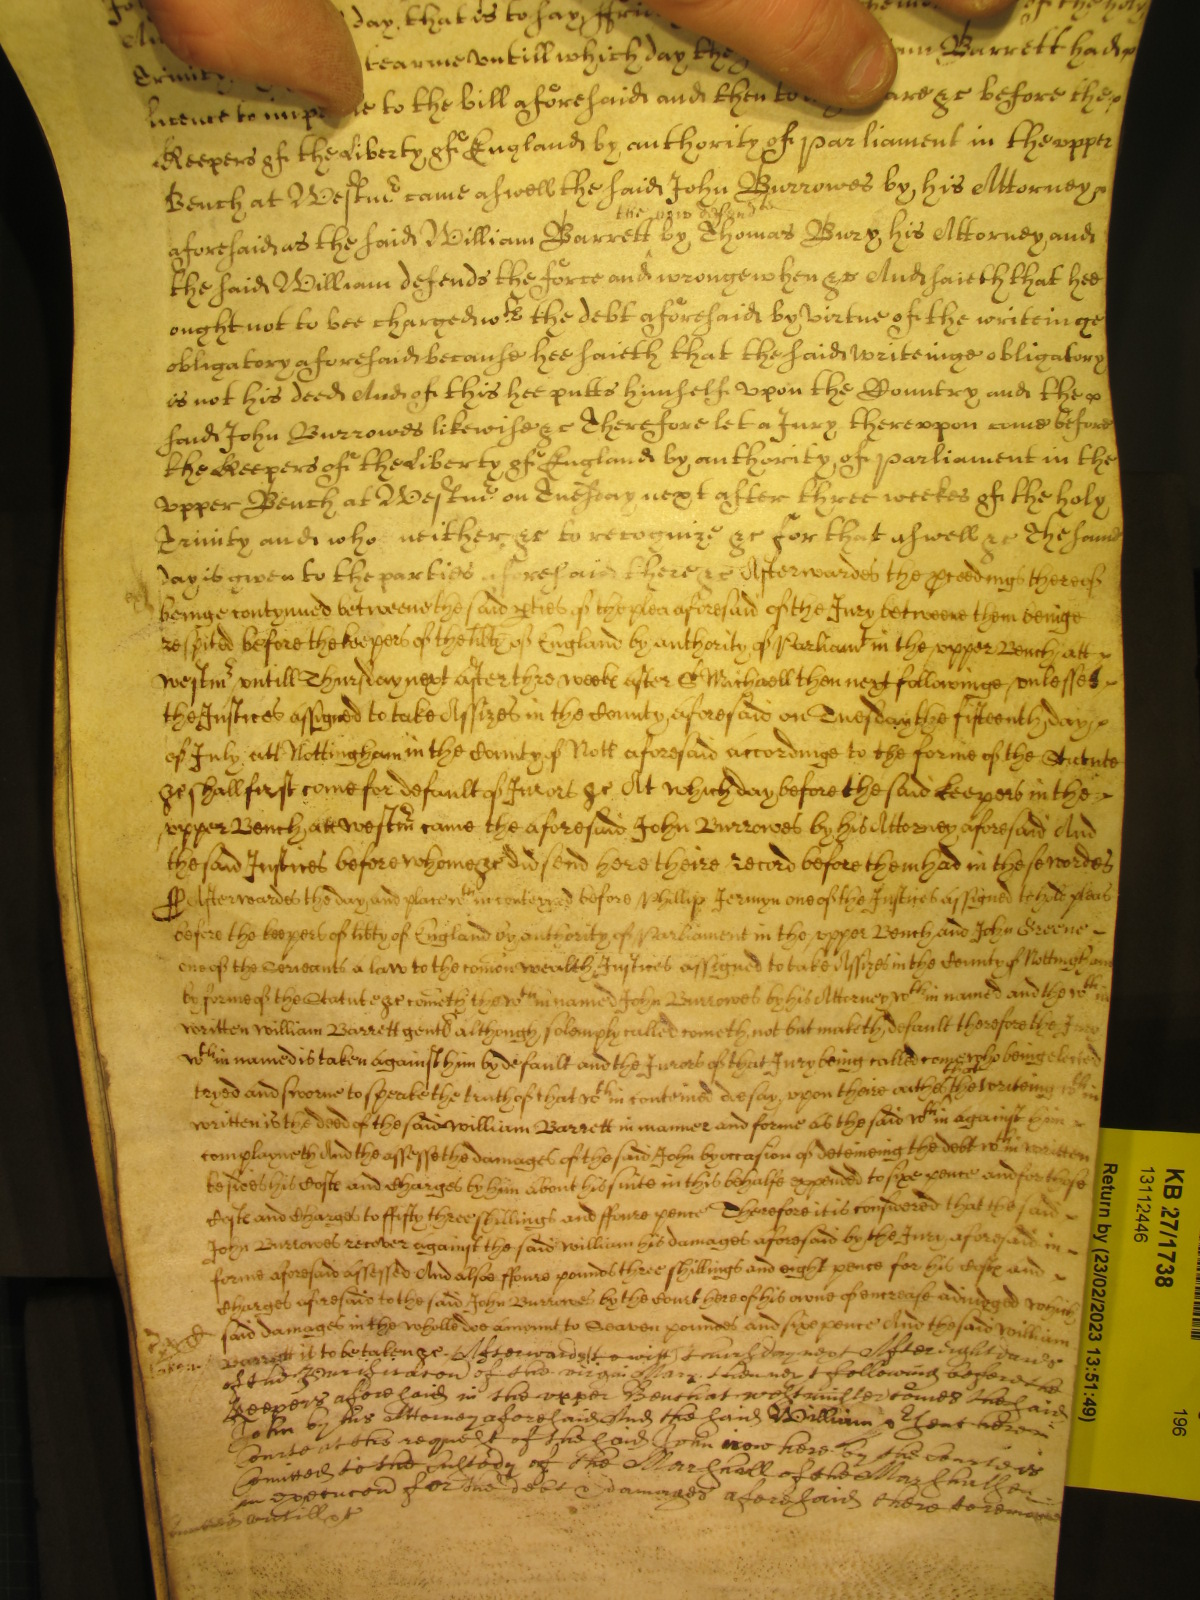 day, that is to say, ffri of the holy
Trinity tearme untill which day the am Barrett had
licence to imp le to the bill aforesaid and then to are &c before the
Keepers of the Liberty of England by authority of Parliament in the upper
Bench at Westmr came aswell the said John Burrowes by his Attorney
the now defendt
aforesaid as the said William Barrett by Thomas Bury his Attorney and
the said William defends the force and wronge when &c And saieth that hee
ought not to bee charged wth the debt aforesaid by virtue of the writeinge
obligatory aforesaid because hee saieth that the said writeinge obligatory
is not his deed And of this hee putts himself upon the Country and the
said John Burrowes likewise &c Therefore let a Jury thereupon come before
the Keepers of the Liberty of England by authority of Parliament in the
upper Bench at Westmr on Tuesday next after three weekes of the holy
Trinity and who neither &c to recognize &c For that aswell &c The same
day is given to the parties aforesaid there &c Afterwardes the pceedings thereof
beinge contynued betweene the said pties of the plea aforesaid of the Jury betweene them beinge
respited before the keepers of the libty of England by authority of Parliamt in the upper Bench att
Westmr untill Thursday next after thre weeke after St Michaell then next followinge unlesse
the Justices assigned to take Assizes in the County aforesaid on Tuesday the fifteenth day
of July att Nottingham in the County of Nott aforesaid accordinge to the forme of the Statute
&c shall first come for default of Jurors &c At which day before the said keepers in the
upper Bench att Westmr came the aforesaid John Burrowes by his Attorney aforesaid And
the said Justices before whome &c did send here theire record before them had in these wordes
Afterwardes the day and place wthin conteyned before Phillip Jermyn one of the Justices assigned to hold pleas
before the keepers of libty of England by authority of Parliament in the upper Bench and John Greene
one of the Serieants a law to the comon wealth Justices assigned to take Assizes in the County of Nottingh
by forme of the Statute &c cometh the wthin named John Burrowes by his Attorney wthin named and the wthin
written William Barrett gent although solemply called cometh not but maketh default therefore the Jury
wthin named is taken against him by default and the Jurors of that Jury being called come who being elected
that
tryed and sworne to speake the truth of that wthin conteined doe say upon theire oathes the writeing wthin
written is the deed of the said William Barrett in manner and forme as the said wthin against him
complayneth And the assesse the damages of the said John by occasion of deteineing the debt wthin written
besides his Coste and Charges by him about his suite in this behalfe expended to sixe pence and for those
Coste and Charges to ffifty three shillings and ffoure pence Therefore it is considered that the said
John Burrowes recover against the said William his damages aforesaid by the Jury aforesaid in
forme aforesaid assessed And alsoe ffoure pounds three shillings and eight pence for his Coste and
Charges aforesaid to the said John Burrowes by the Court here of his owne of encrease adiudged which
said damages in the wholle doe amount to Seaven pounds and sixe pence And the said William
Barrett it to be taken &c Afterwards (to witt) next After eight dayes
of the Purification of the virgin Mary then next following before the
Keepers aforesaid in the upper Bench at westminster comes the said
John by his Attorney aforesaid And the said William psent here in
Courte at the request of the said John now here by the Court is
Comitted to the Custody of the Marshall of the Marshallsea
in execucon for the debt & damages aforesaid there to remaine
untill &c
KB 27/1738
13112446
196
Return by (23/02/2023 13:51:49)